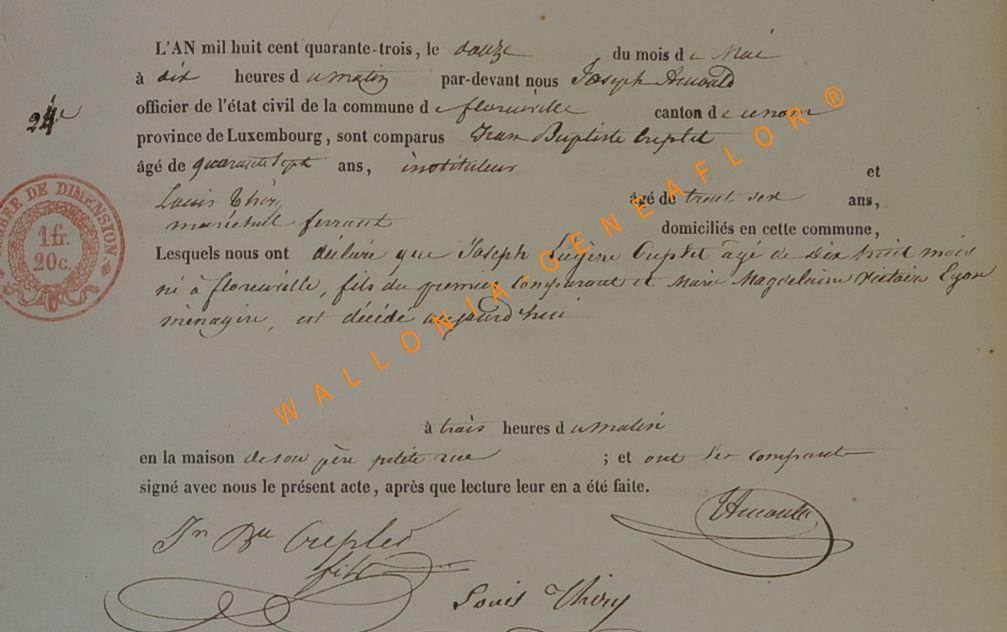 L'AN mil huit cent quarante-trois, le douze du mois de Mai
à dix heures du matin par-devant nous Joseph
officier de l'état civil de la commune de florenville canton de
24e
province de Luxembourg, sont comparus Jean Baptiste
âgé de quarante sept ans, instituteur et
Louis Thiry âgé de trente six ans,
maréchal ferrant domiciliés en cette commune,
Lesquels nous ont déclaré que Joseph Eugène âgé de Dix huit mois
né à florenville, fils du premier Comparant et Marie Magdelaine
ménagère, est décédé aujourd'hui
à trois heures du matin
en la maison de son père petite rue ; et ont les comparants
signé avec nous le présent acte, après que lecture leur en a été faite.
Jn Bte
Louis Thiry
TIMBRE DE DIMENSION
1 fr.
20 c.
WALLONIA-GENEAFLOR ®